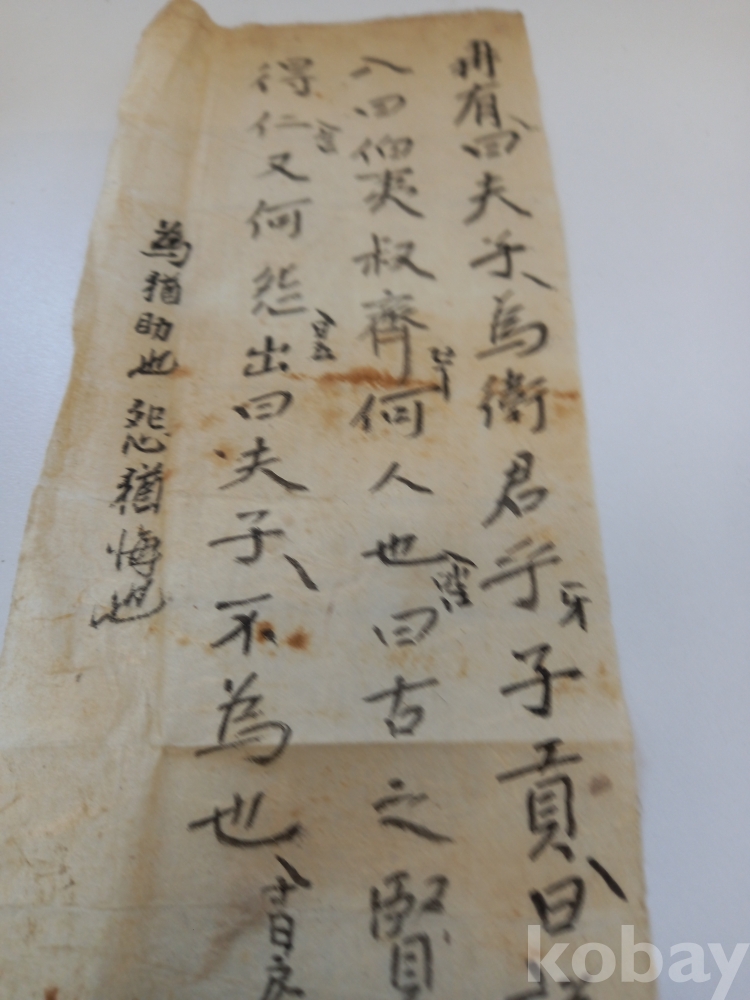 冉有曰夫子為衛君乎 牙 子貢曰
入曰伯夷叔齊何人也曰古之賢
得仁又何怨出曰夫子不為也 十日
為猶助也 怨猶悔也
kobay